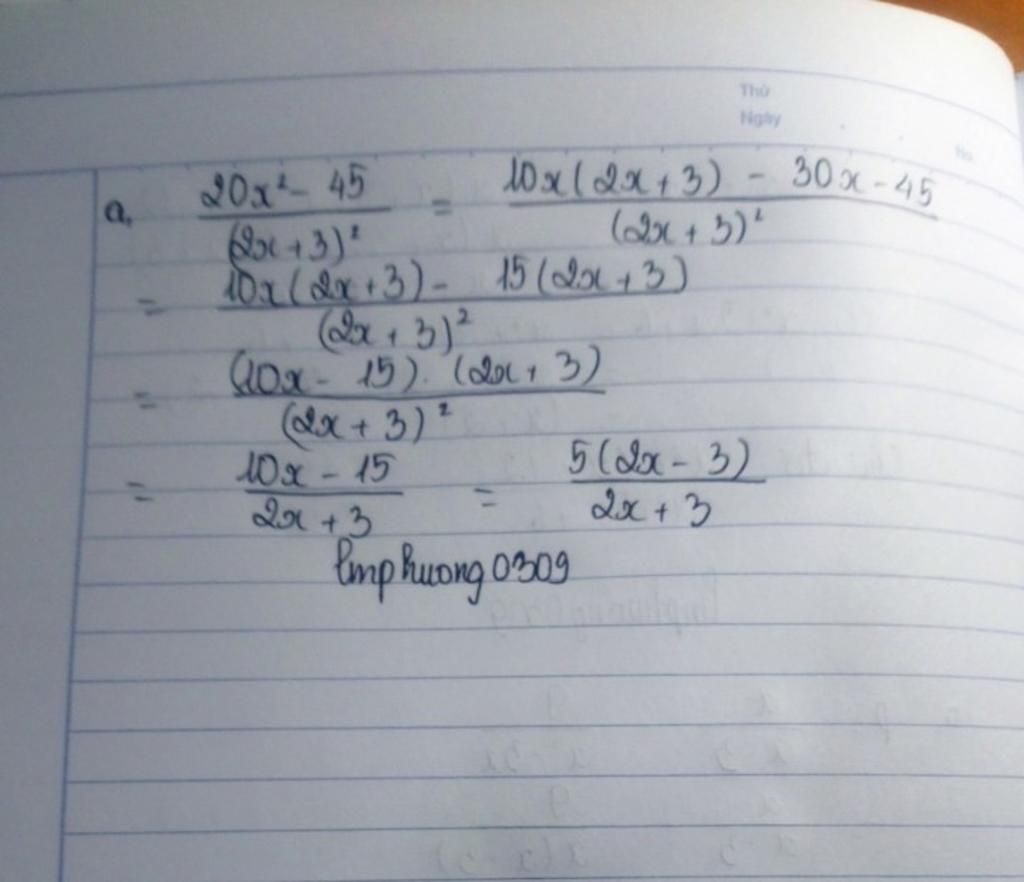 Thứ
Ngày
No.
a, \frac{20x² - 45}{(2x+3)²} = \frac{10x(2x+3) - 30x - 45}{(2x+3)²}
= \frac{10x(2x+3) - 15(2x+3)}{(2x+3)²}
= \frac{(10x - 15).(2x+3)}{(2x+3)²}
= \frac{10x - 15}{2x+3} = \frac{5(2x - 3)}{2x+3}
lmphuong0309